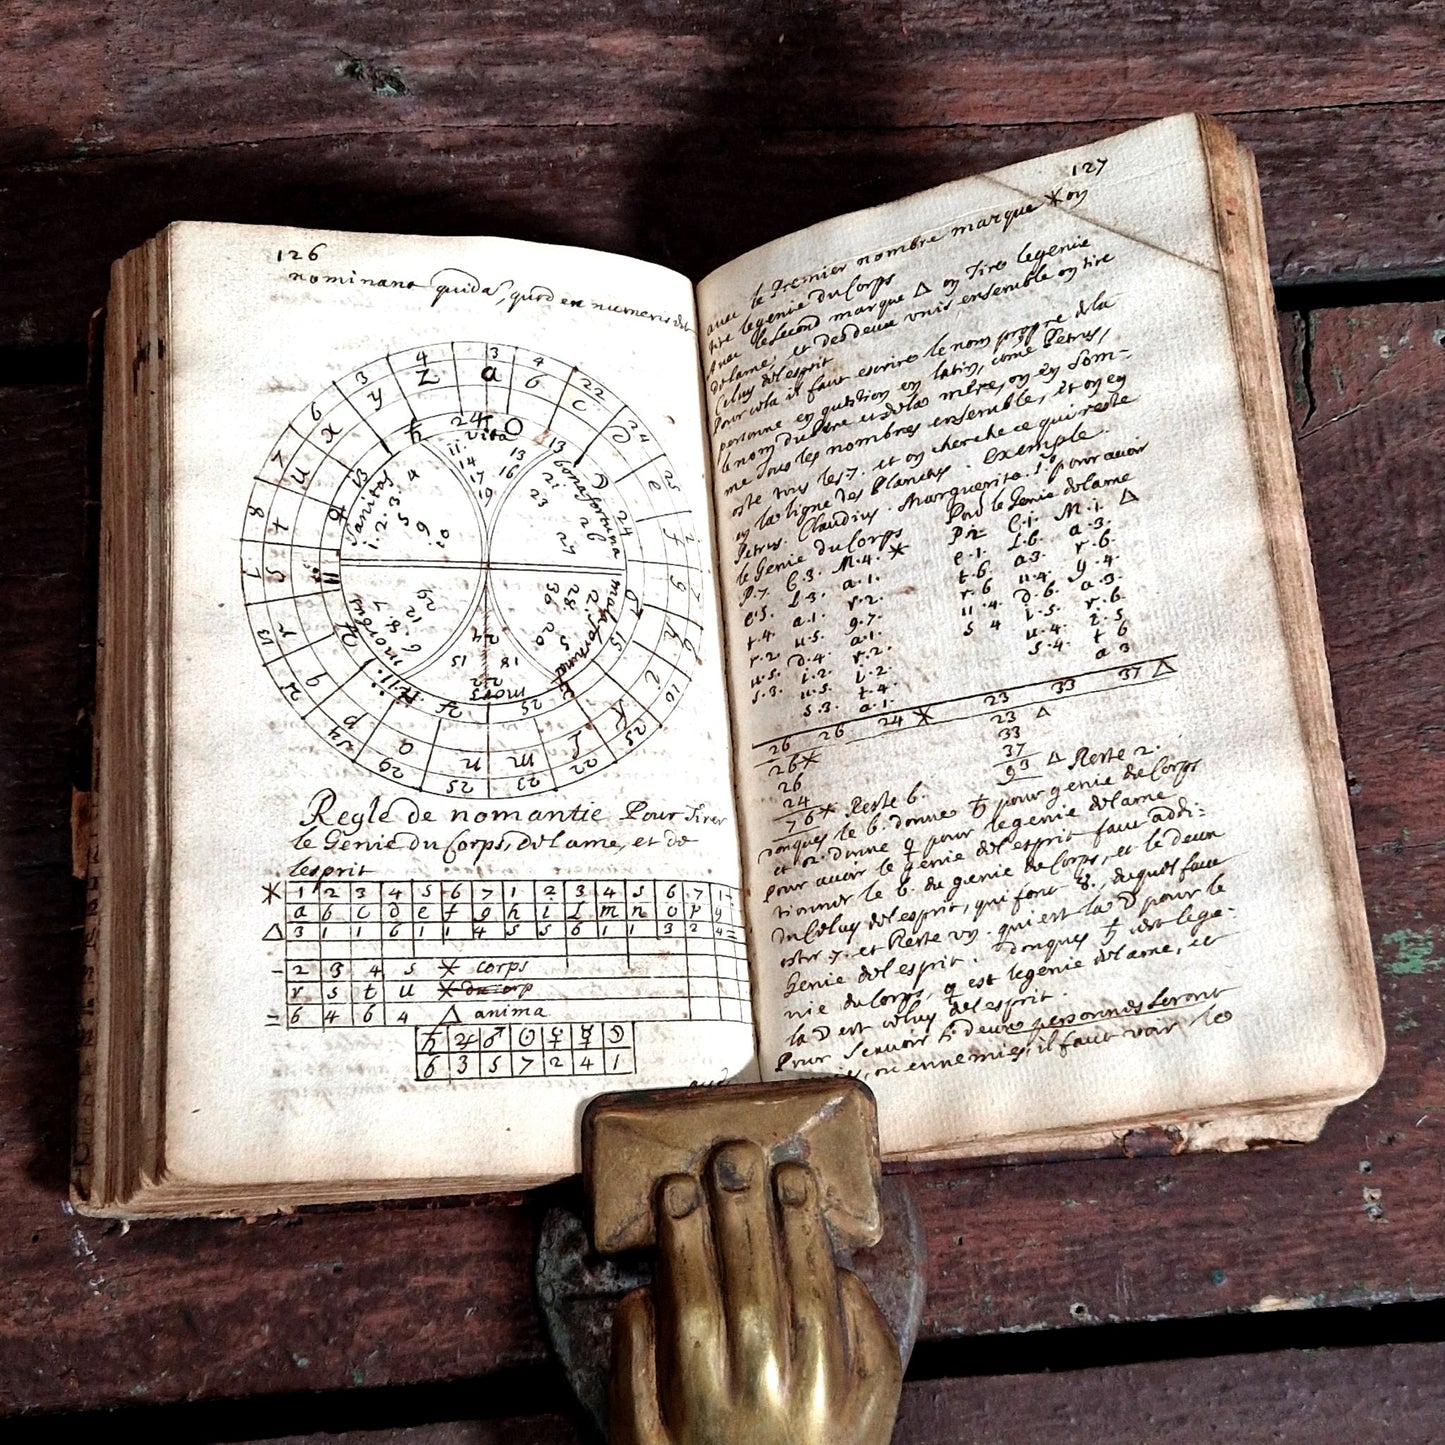 126
nominant quidā, quod ex numeris
4 3 4 22 24 25 2 7 6 10 25 22 23 25 29 24 21 13 7 8 7 6 3
z a b c d e f g h i k l m n o p q r s t u x y
♄ 24 ☉ 13 ☽ 24 ♂ 15 25 ♃
vita
11. 13
14 16
17
19
bona fortuna
2.
23
26
27
sanitas
1. 2. 3. 4
5
9
10
mala fortuna
2.
28.
30
20
5
6 morbus
7
8
12
29
mors
24
15 18
22
Regle de nomantie Pour Tirer
le Genie du Corps, de l ame, et de
lesprit
* 1 2 3 4 5 6 7 1 2 3 4 5 6 7 1
a b c d e f g h i l m n o p q
△ 3 1 1 6 1 1 4 5 5 6 1 1 3 2 4
2 3 4 5 * corps
r s t u * du corp
6 4 6 4 △ anima
♄ ♃ ♂ ☉ ♀ ☿ ☽
6 3 5 7 2 4 1
127
le Premier nombre marque * on
avec
tire le genie du Corps
avec le second marque △ on Tire le genie
de lame, et des deux unis ensemble on tire
Celuy de l esprit
Pour cela il faut escrire le nom propre de la
personne en question en latin, come Petrus,
le nom du Pere et de la mere, on en Som-
me Tous les nombres ensemble, et on en
oste tous les 7. et on cherche ce qui reste
en la ligne des Planetes. exemple.
Petrus. Claudius. Marguerita. pour avoir
le Genie du Corps Pour le Genie de lame
P. 7. C. 3. M. 4. * P. 2 C. 1. M. 1. △
e. 5. L. 3. a. 1. e. 1. L. 6. a. 3.
t. 4. a. 1. r. 2. t. 6. a 3. r. 6.
r. 2 u. 5. g. 7. r. 6 u. 4. g. 4.
u. 5. d. 4. a. 1. u. 4. d. 6. a. 3.
s. 3. i. 2. r. 2. s 4 i. 5. r. 6
u. 5. i. 2. u. 4. i. 5
s. 3. t. 4. s. 4. t 6
a. 1. a 3
26 26 24 * 23 33 37 △
26 * 23 △
26 33
24 37
76 * Reste 6. 93 △ Reste 2.
Donques le 6. donne ♄ pour genie du Corps
et 2. donne ♀ pour le genie de lame
Pour avoir le genie de l esprit faut addi-
tionner le 6. du genie du Corps, et le deux
du Celuy de l esprit, qui font 8., duquel faut
oster 7. et Reste un. qui est la ☽ pour le
Genie de l esprit. Donques ♄ est le ge-
nie du Corps, ♀ est le genie de lame, et
la ☽ est celuy de l esprit.
Pour Scavoir si deux personnes seront
ou ennemies, il faut voir le